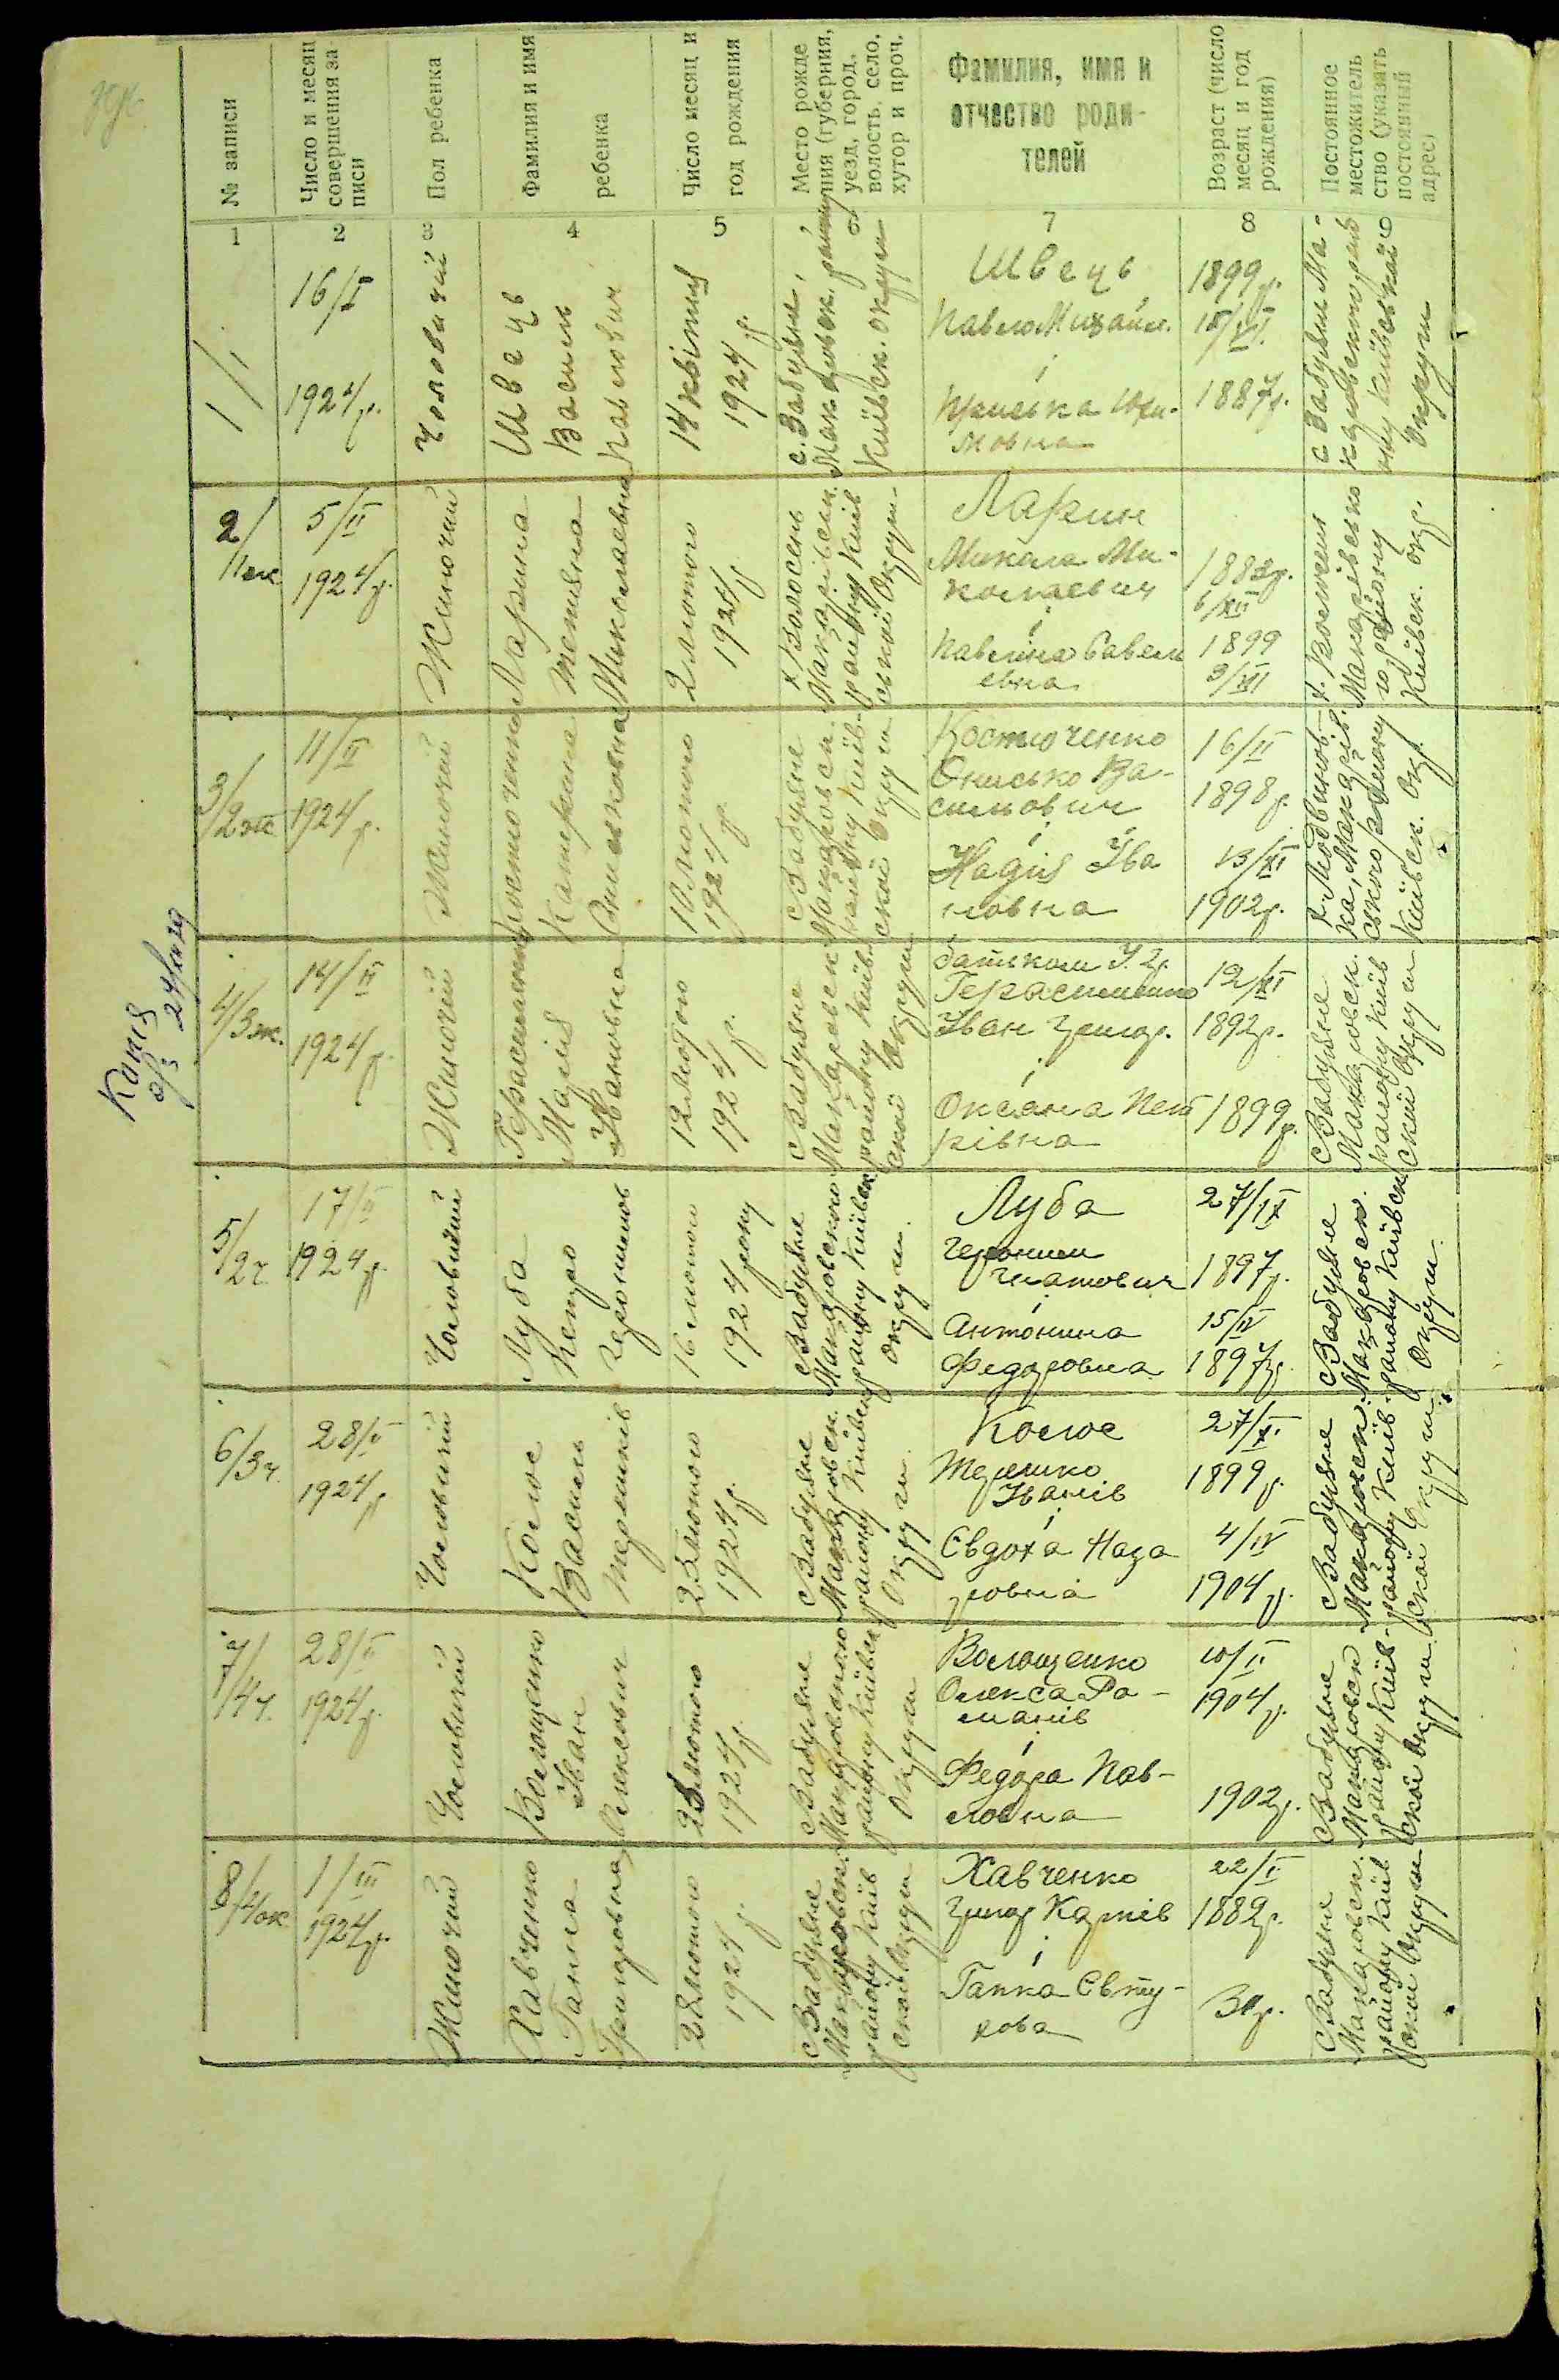 № записи
Число и месяц
совершения за
писи
Пол ребенка
Фамилия и имя
ребенка
Число месяц и
год рождения
Место рожде
ния (губерния,
уезд, город,
волость, село,
хутор и проч.
Фамилия, имя и
отчество роди-
телей
Возраст (число
месяц и год
рождения)
Постоянное
местожитель
ство (указать
постоянный
адрес)
1
2
3
4
5
6
7
8
9
1/1
16/I
1924 р.
Чоловичий
Швець
Василь
Павлович
14 квітня
1924 р.
с. Забуяне,
Макаровск. району
Київск. округи
Швець
Павло Михайл.
і
Приська
мовна
1899 р.
1887 р.
с Забуяне Ма-
каровск
ону Київской
Округи
2/1 ж.
5/II
1924 р.
Жиночий
Ларина
Тетяна
Миколаевна
2 лютого
1924 р.
х Волосень
Макарівськ.
району Київ
ськой Округи
Ларин
Микола Ми-
колаевич
і
Павлина Савели
евна
6/XII
1899
9/XII
х.
Макарівсько
го району
Київск. окр.
3/2 ж
11/II
1924 р.
Жиночий
Костюченко
Катерина
Онисковна
10 лютого
1924 р.
с Забуяне
Макаровск.
району Київ-
ской Округи
Костюченко
Онисько Ва-
сильович
і
Надія Іва
новна
16/II
1898 р.
13/XI
1902 р.
х.
ка, Макарів.
ського району
Київск. Окр.
Копія
24/
4/3 ж.
14/II
1924 р.
Жиночий
Герасименко
Марія
Івановна
12 лютого
1924 р.
с Забуяне
Макаровск
району Київ-
ской Округи
Герасименко
Іван Григор.
і
Оксана Пет
рівна
12/XI
1892 р.
1899 р.
с Забуяне
Макаровск.
району Київ
ской Округи
5/2 ч.
17/II
1924 р.
Чоловичий
Луба
Петро
Геронимов
16 лютого
1924 року
с Забуяне
Макаровского
району Київск
Округи
Луба
Героним
Гнатович
і
Антонина
Федоровна
27/IX
1897 р.
15/IV
1897 р.
с Забуяне
Макаровск.
району Київск
Округи.
6/3 ч.
28/II
1924 р
Чоловичий
Колос
Василь
Терешків
1924 р.
с Забуяне
Макаровск.
району Київск
Округи
Колос
Терешко
Іванів
і
Євдоха Наза
ровна
27/X
1899 р.
4/IV
1904 р.
с Забуяне
Макаровск.
району Київ-
ской Округи
7/4 ч.
28/II
1924 р.
Чоловичий
Волощенко
Іван
Олексович
1924 р.
с Забуяне
Макаровского
району Київск
Округи
Волощенко
Олекса Ро-
манів
і
Федора Пав-
ловна
10/II
1904 р.
1902 р.
с Забуяне
Макаровск
району Київ-
ской Округи
8/4 ж
1/III
1924 р.
Жиночий
Хавченко
Ганна
Григоровна
28 лютого
1924 р.
с Забуяне
Макаровск.
району Київ
ской Округи
Хавченко
Григор Карпів
і
Гапка Євту-
хова
22/I
1882 р.
с Забуяне
Макаровск.
району Київ
ской Округи